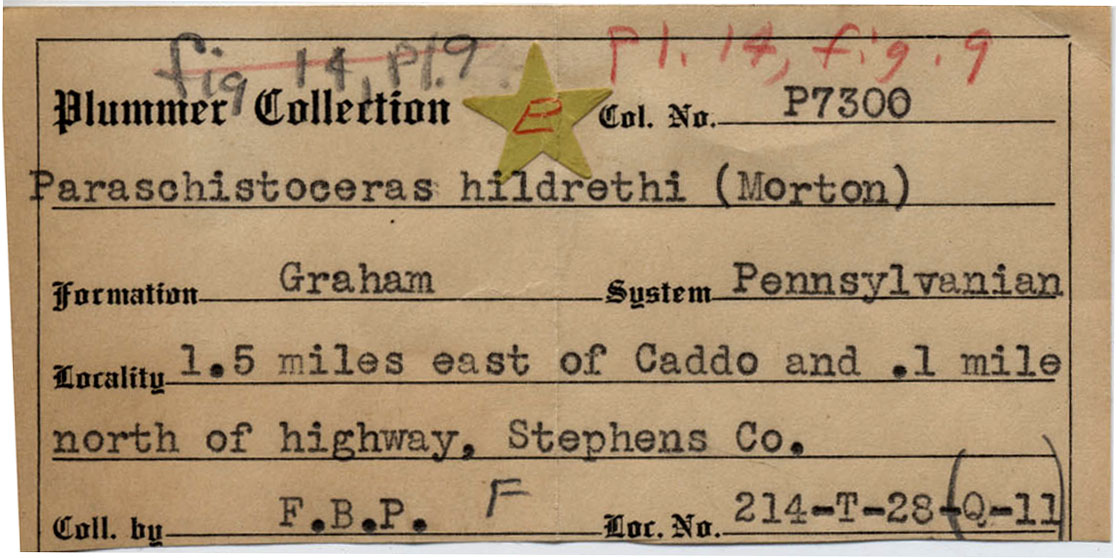 fig 14, pl. 9. pl. 14, fig. 9
Plummer Collection E Col. No. P7300
Paraschistoceras hildrethi (Morton)
Formation Graham System Pennsylvanian
Locality 1.5 miles east of Caddo and .1 mile
north of highway, Stephens Co.
Coll. by F.B.P. F Loc. No. 214-T-28-(Q-11)